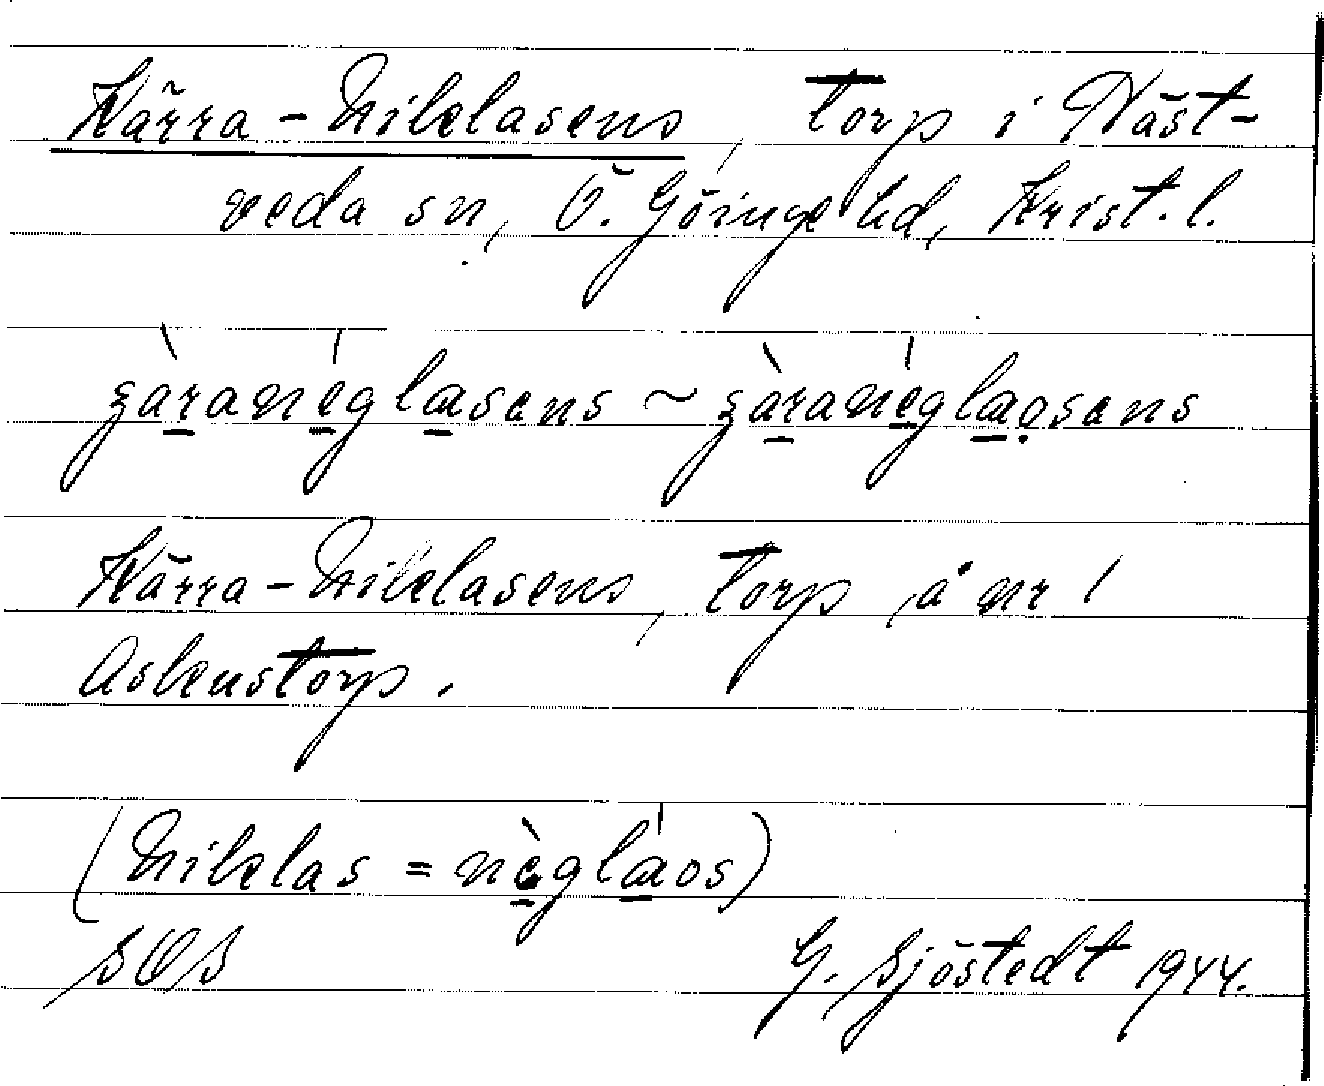 Kärra-Niklasens, torp i Näst-
veda sn, Ö. Göinge hd, Krist. l.
ʒàranéglasens ~ ʒàranéglaosens
Kärra-Niklasens, torp å nr 1
Askenstorp.
(Niklas = nègláos)
SOS G. Sjöstedt 1944.